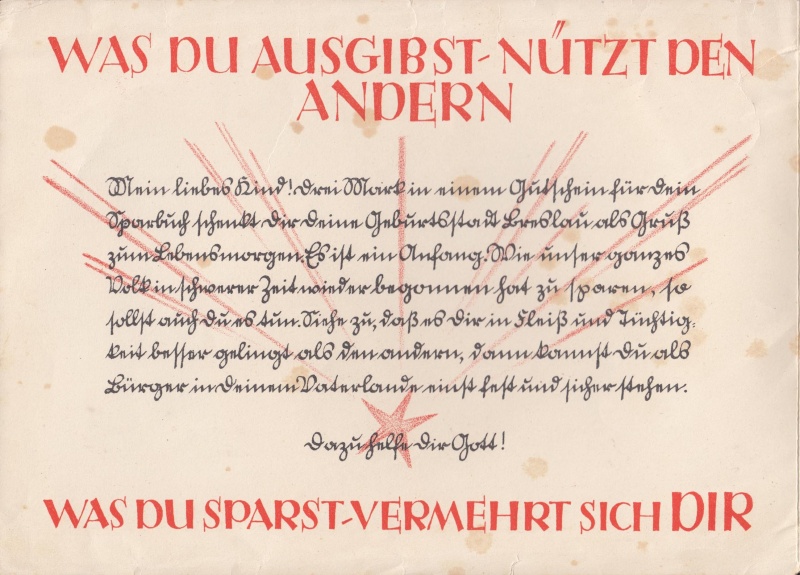 WAS DU AUSGIBST-NÜTZT DEN
ANDERN
Mein liebes Kind! Drei Mark in einem Gutschein für Dein
Sparbuch schenkt Dir Deine Geburtsstadt Breslau als Gruß
zum Lebensmorgen. Es ist ein Anfang. Wie unser ganzes
Volk in schwerer Zeit wieder begonnen hat zu sparen, so
sollst auch Du es tun. Siehe zu, daß es Dir in Fleiß und Tüchtig-
keit besser gelingt als den andern, dann kannst Du als
Bürger in Deinem Vaterlande einst fest und sicher stehen.
Dazu helfe Dir Gott!
WAS DU SPARST-VERMEHRT SICH DIR